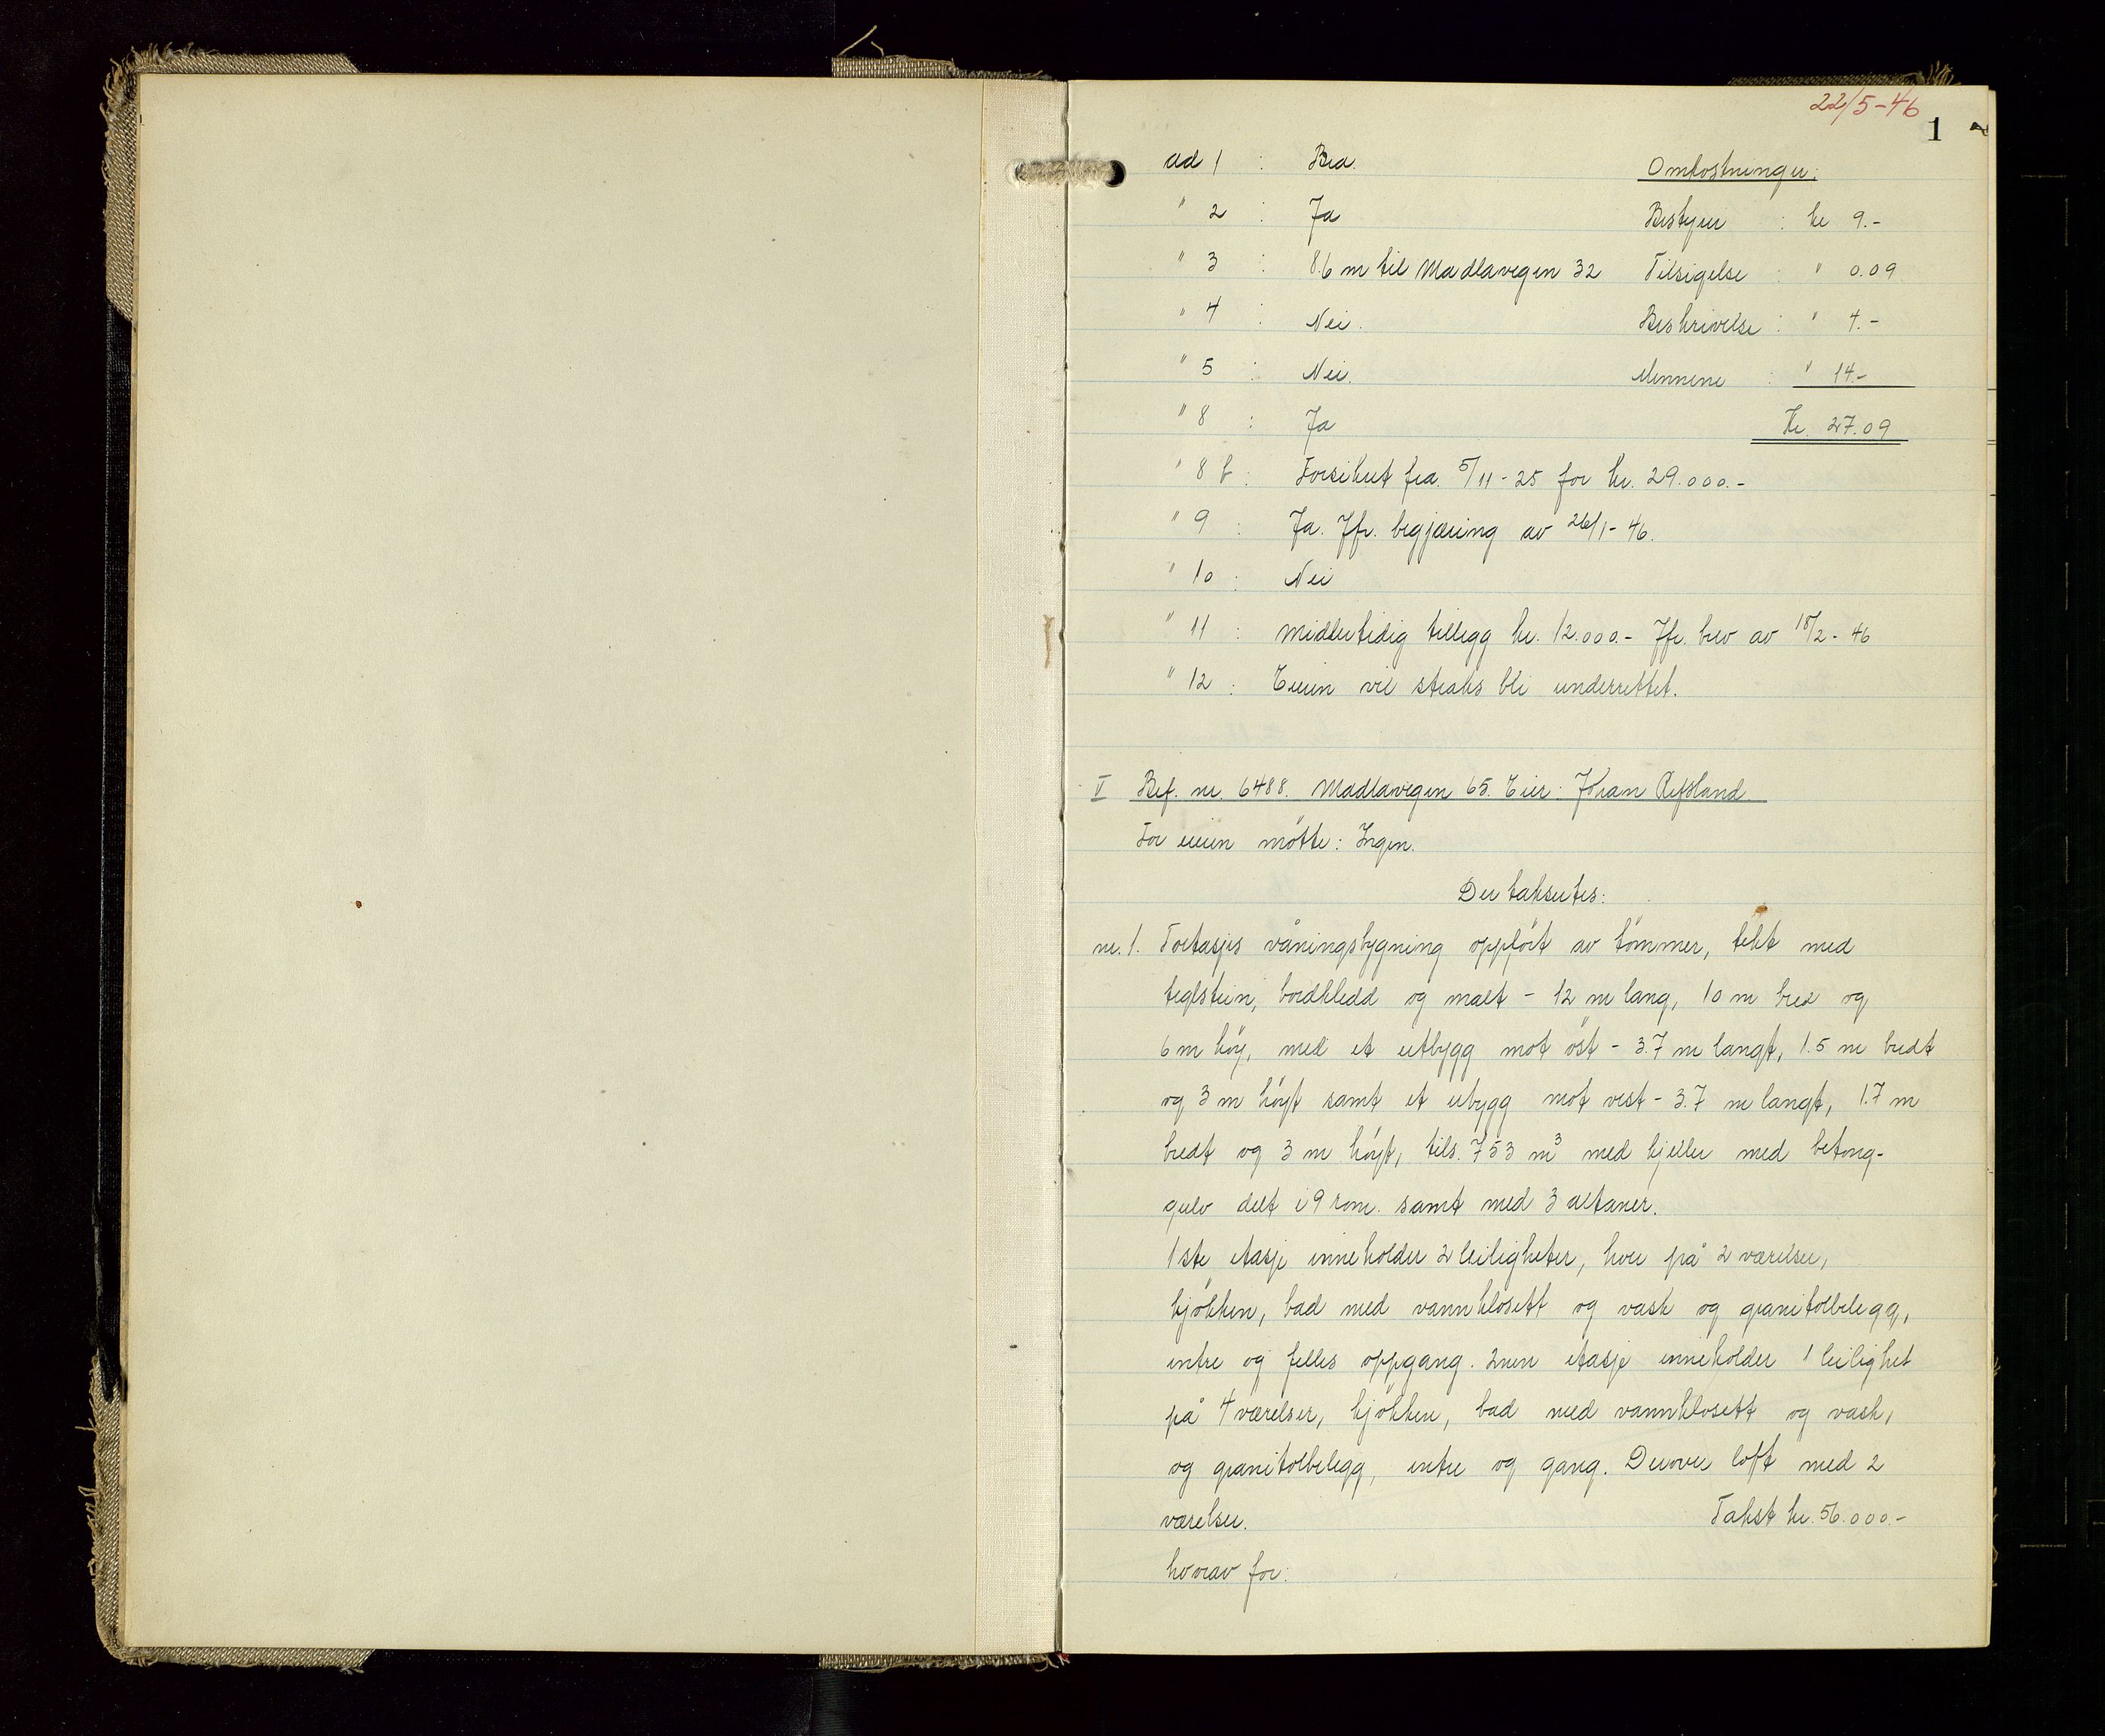 22/5-46
1
ad 1 : Bra. Omkostninger:
" 2 : Ja Bestyrer : kr 9.-
" 3 : 8.6 m til Madlavegen 32 Tilsigelse : " 0.09
" 4 : Nei. Beskrivelse : " 4.-
" 5 : Nei. Mennene : " 14.-
" 8 : Ja Kr. 27.09
" 8 b : Forsikret fra 5/11-25 for kr. 29.000.-
" 9 : Ja. Jfr. begjæring av 26/1-46.
" 10 : Nei
" 11 : Midlertidig tillegg kr. 12.000.- Jfr. brev av 18/2-46
" 12 : Eieren vil straks bli underrettet.
V Bef. nr. 6488. Madlavegen 65. Eier: Johan Refsland
For eieren møtte: Ingen.
Der taksertes:
nr. 1. Toetasjes våningsbygning oppført av tømmer, tekt med
teglstein, bordkledd og malt - 12 m lang, 10 m bred og
6 m høy, med et utbygg mot øst - 3.7 m langt, 1.5 m bredt
og 3 m høyt samt et utbygg mot vest - 3.7 m langt, 1.7 m
bredt og 3 m høyt, tils. 753 m³ med kjeller med betong-
gulv delt i 9 rom. samt med 3 altaner.
1ste etasje inneholder 2 leiligheter, hver på 2 værelser,
kjøkken, bad med vannklosett og vask og granitolbelegg,
entre og felles oppgang. 2nen etasje inneholder 1 leilighet
på 4 værelser, kjøkken, bad med vannklosett og vask,
og granitolbelegg, entre og gang. Derover loft med 2
værelser. Takst kr. 56.000.-
hvorav for: